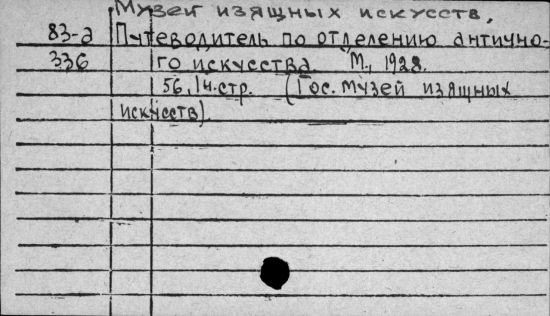 Музей изящных искусств.
83-а Путеводитель по отделению антично-
336 го искусства М., 1928.
56, 1н.стр. (Гос. музей изящных
искусств).